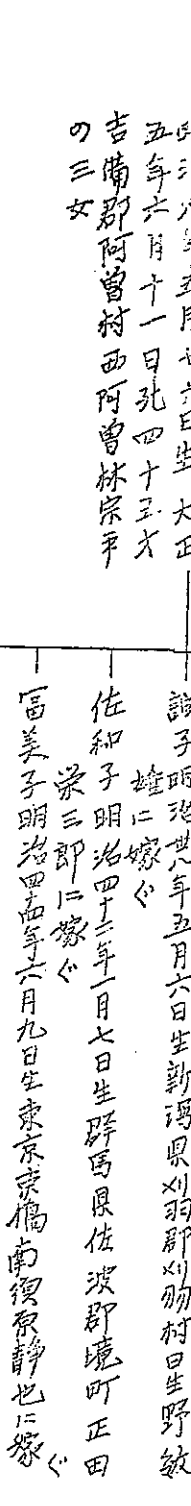 明治八年五月廿六日生 大正
五年六月十一日死四十二才
吉備郡阿曽村西阿曽林宗平
の三女
諏子明治卅八年五月六日生新潟県刈羽郡刈羽村日生野敏
雄に嫁ぐ
佐和子明治四十二年一月七日生群馬県佐波郡境町正田
栄三郎に嫁ぐ
冨美子明治四十四年六月九日生東京京橋南須原静也に嫁
ぐ